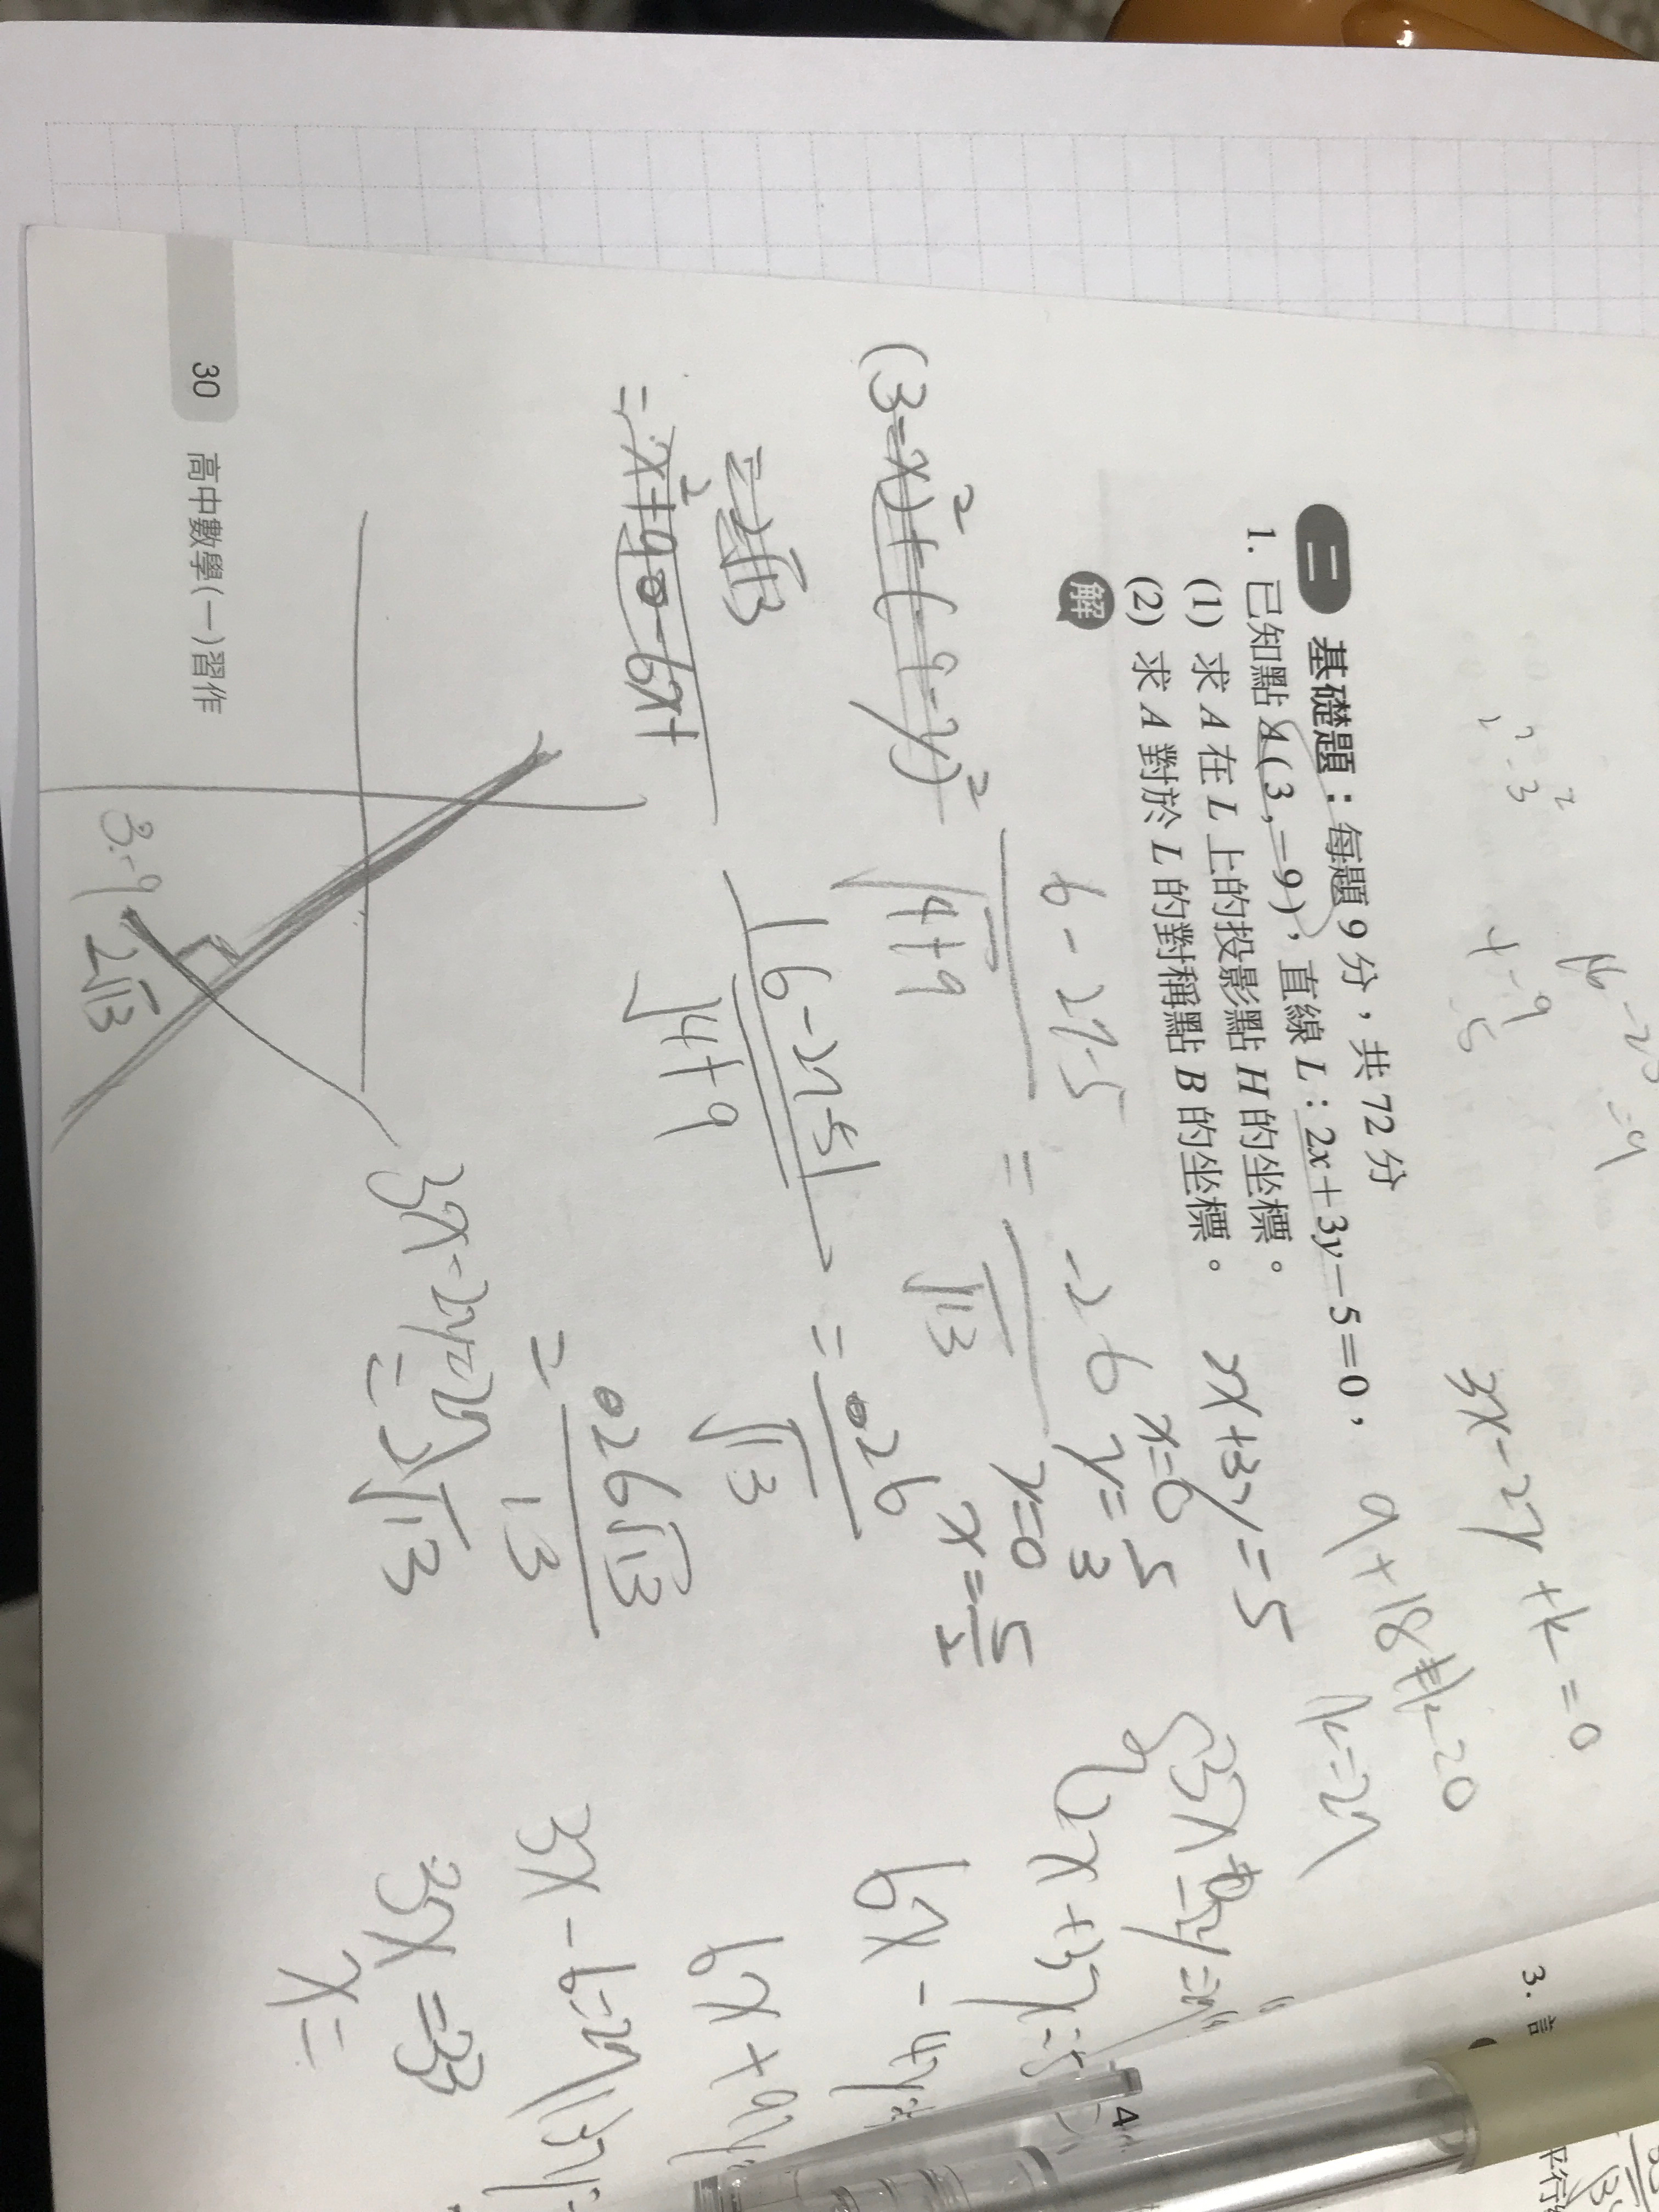 3x-2y+k=0
9+18+k=0
k=-27
二 基礎題：每題9分，共72分
1. 已知點A(3,-9)，直線L：2x+3y-5=0，
(1) 求A在L上的投影點H的坐標。
(2) 求A對於L的對稱點B的坐標。
解
2x+3y=5
x=0
y=5/3
y=0
x=5/2
6-27-5/√4+9 = -26/√13
(3-x)²+(-9-y)²
|6-27-5|/√4+9 = 26/√13
=2√13
=x²+9-6x+
=26√13/13
=2√13
2x+3y=5
6x-4y=
6x+9y
3x-6=27
3x=33
x=
3x-2y=27
3,-9
2√13
30 高中數學(一)習作
3.
4
平行